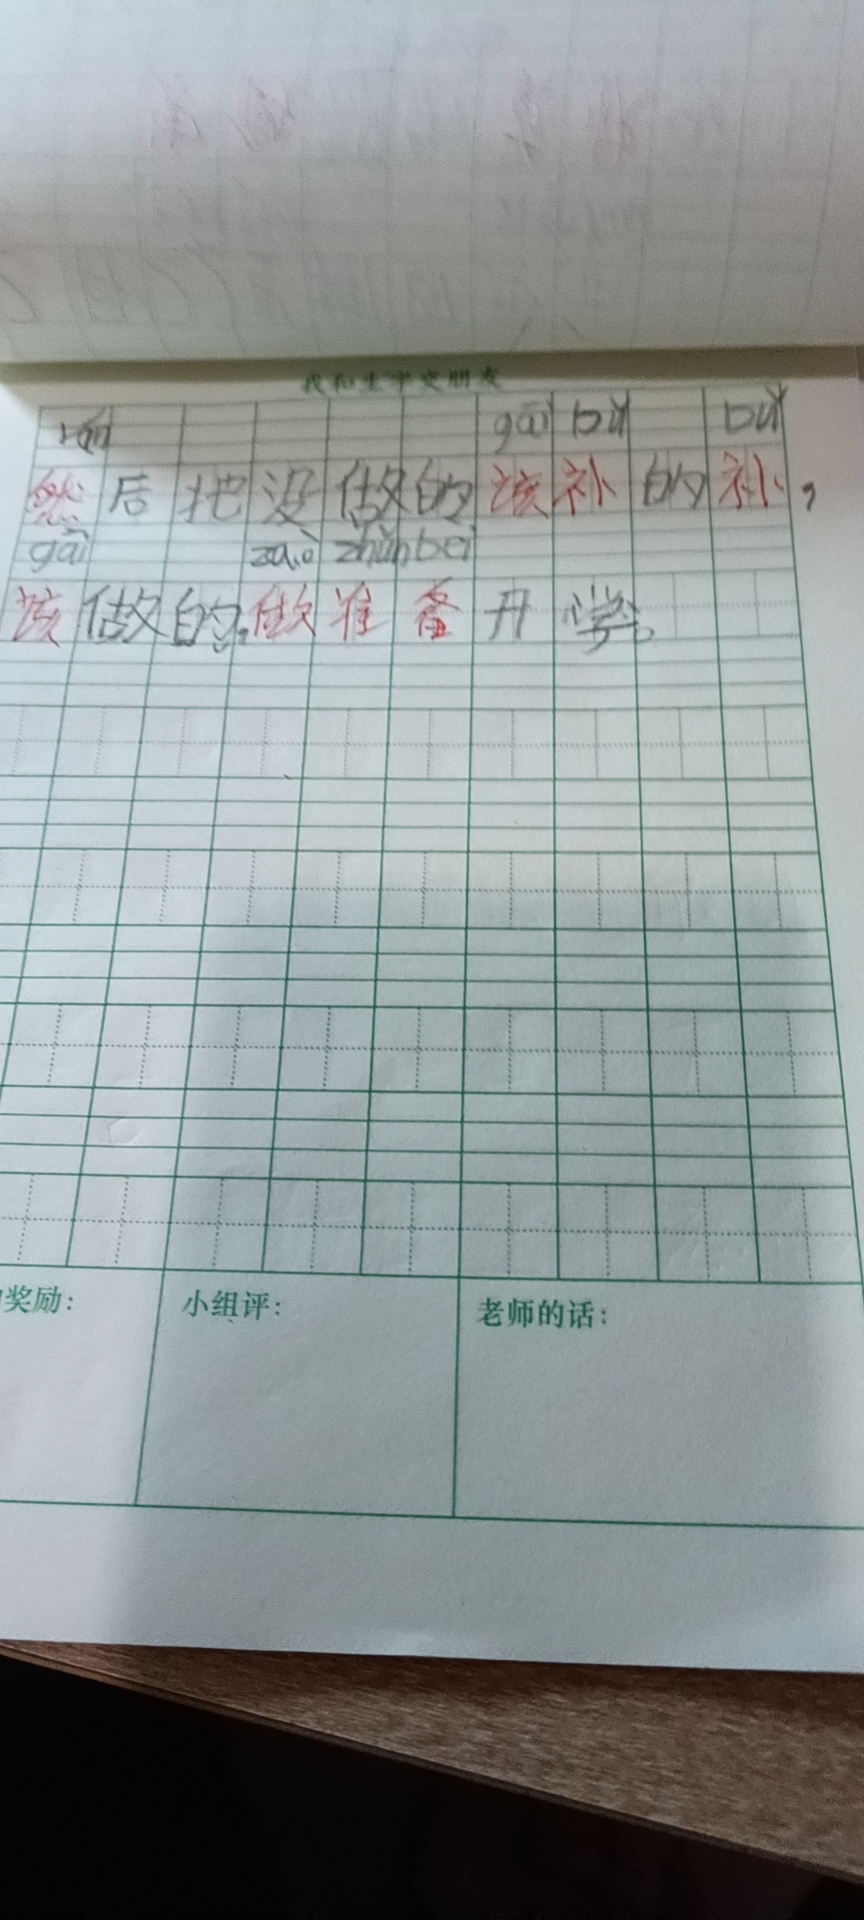 我和生字交朋友
rán gāi bǔ bǔ
然后把没做的该补的补，
gāi zuò zhǔn bèi
该做的。做准备开学。
奖励：
小组评：
老师的话：